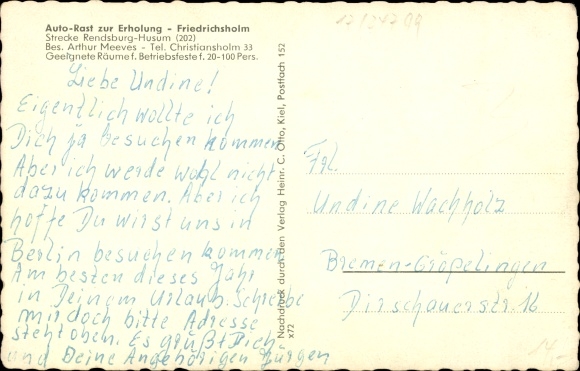 Auto-Rast zur Erholung - Friedrichsholm
Strecke Rendsburg-Husum (202)
Bes. Arthur Meeves - Tel. Christiansholm 33
Geeignete Räume f. Betriebsfeste f. 20-100 Pers.
Liebe Undine!
Eigentlich wollte ich
Dich ja besuchen kommen
Aber ich werde wohl nicht
dazu kommen. Aber ich
hoffe Du wirst uns in
Berlin besuchen kommen
Am besten dieses Jahr
in Deinem Urlaub. Schreibe
mir doch bitte Adresse
steht oben. Es grüßt Dich
und Deine Angehörigen Jürgen
Nachdruck durch den Verlag Heinr. C. Otto, Kiel, Postfach 152
x72
Frl.
Undine Wachholz
Bremen-Gröpelingen
Dirschauerstr. 16